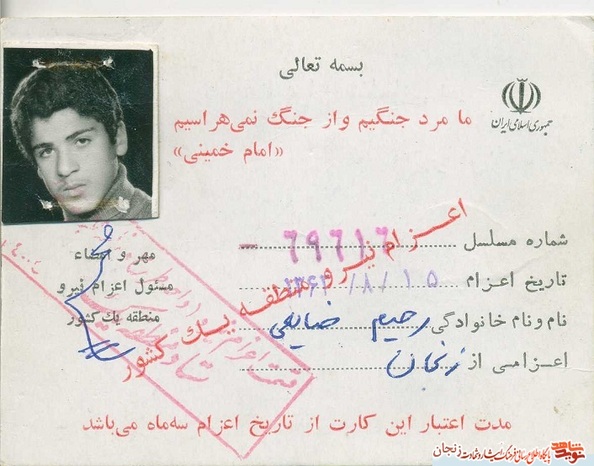 بسمه تعالی
جمهوری اسلامی ایران
ما مرد جنگیم و از جنگ نمی‌هراسیم
«امام خمینی»
شماره مسلسل ۶۹۶۱۶
تاریخ اعزام ۱۵ /۸/ ۱۳۶۲
نام و نام خانوادگی رحیم ضیایی
اعزامی از زنجان
مهر و امضاء
مسئول اعزام نیرو
منطقه یک کشور
اعزام نیرو منطقه یک کشور
مدت اعتبار این کارت از تاریخ اعزام سه‌ماه می‌باشد
نوید شاهد
پایگاه اطلاع رسانی فرهنگ ایثار و شهادت زنجان